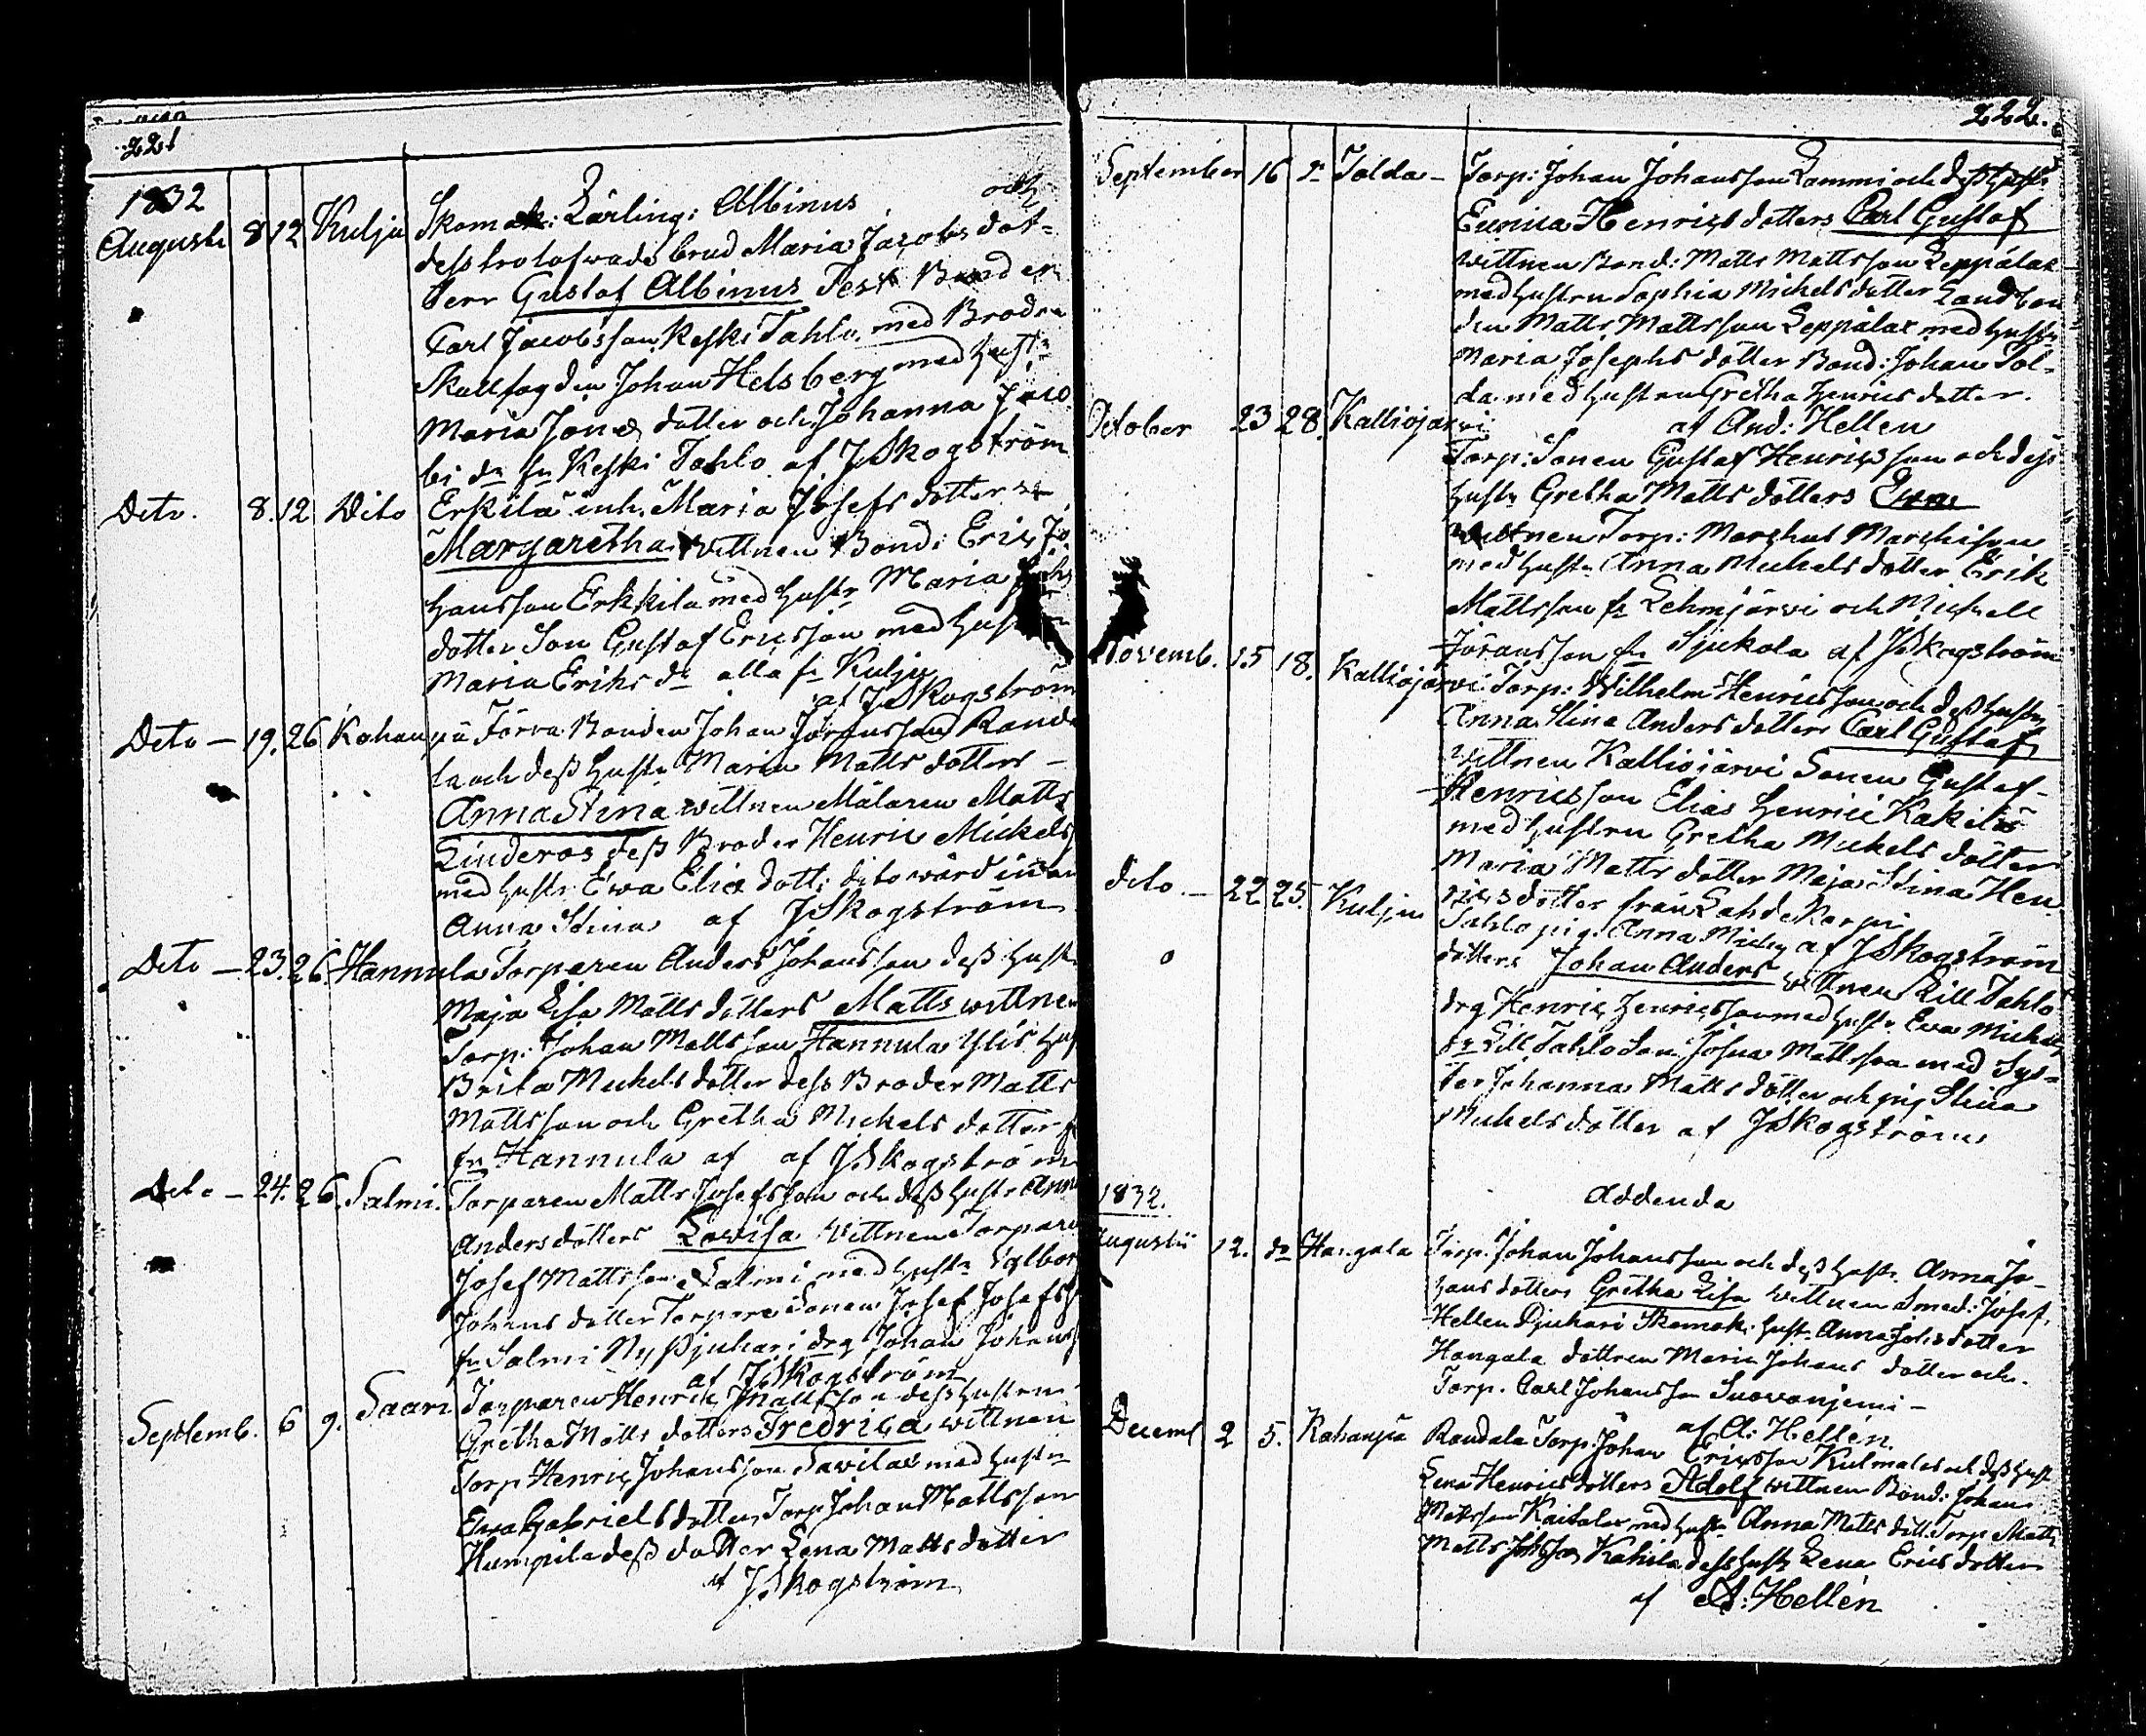 221
1832
Augusti 8 12 Kulju Skomak: Lärling: Albinus och
dess trolofwade brud Maria Jacobs dot-
terr Gustaf Albinus Test Bonden
Carl Jacobsson Keski Tahlo med Brodren
Skallfogden Johan Helsberg med hustr
Maria Jonæ dotter och Johanna Jaco
bi dr fr Keski Tahlo af JSkogström
Dito. 8. 12 Dito Erkilä inh. Maria Josefs dotters
Margaretha wittnen Bond: Eric Jo
hansson Erkkila med hustr Maria
dotter Son Gustaf Ericsson med hustr
Maria Eriks dr alla fr Kulju
af JSkogström
Dito — 19. 26 Kohan på Förra Bonden Johan Jöransson Randa
la och dess hustr Maria Matts dotters —
Anna Stina wittnen Målaren Matts
Linderos dess Broder Henric Mickels
med hustr Ewa Elias dott: dito wärdinnan
Anna Stina af JSkogström
Dito — 23. 26. Hannula Torparen Anders Johansson dess hustr
Maja Lisa Matts dotters Matts wittnen
Torp: Johan Mattsson Hannula Ylis hus
Brita Michels dotter dess Broder Matts
Mattsson och Gretha Mickels dotter
fr Hannula af af JSkogström
Dito — 24. 26. Salmi. Torparen Matts Josefsson och dess hustr Anna
Anders dotters Lowisa Wittnen Torparen
Josef Mattsson Salmi med hustr Valbor
Johans dotter Torpare Sonen Josef Josefss
fr Salmi Ny Pjuhari drg Johan Johanss
af JSkogström
Septemb. 6 9. Saari Torparen Henrik Mattsson dess hustru
Gretha Matts dotters Fredrica wittnen
Torp Henric Johansson Sawilax med hustru
Ewa Gabriels dotter Torp Johan Mattsson
Humpila dess dotter Lena Matts dotter
af JSkogström
222.
September 16 dr Tolda — Torp: Johan Johansson Lammi och dess hustr
Eunica Henrics dotters Carl Gustaf
wittnen Bond: Matts Mattsson Leppälax
med hustru Sophia Michels dotter Landbon
den Matts Mattsson Leppälax med hustr
Maria Josephs dotter Bond: Johan Tol-
da med hustru Gretha Henrics dotter.
af And: Hellen
October 23 28. Kalliojärvi Torp: Sonen Gustaf Henricsson och dess
hustr Gretha Matts dotters Ewa
wittnen Torp: Marckus Marckisson
med hustr Anna Michels dotter Erik
Mattsson fr Lehmjärvi och Michell
Jöransson fr Sjukola af JSkogström
Novemb. 15 18. Kalliojärvi Torp: Wilhelm Henricsson och dess hustru
Anna Stina Anders dotters Carl Gustaf
Wittnen Kalliojärvi Sonen Gustaf
Henricsson Elias Henrici Kakila
med hustru Gretha Michels dotter
Maria Matts dotter Maja Stina Hen
rics dotter från Lahdekorpi
af JSkogström
dito — 22 25. Kulju Tahlo pig. Anna Michels
dotters Johan Anders wittnen Lill Tahlo
drg Henric Henricsson med hustr Ewa Michels
fr Lill Tahlo Son Josua Mattsson med Sys-
ter Johanna Matts dotter och pig Stina
Michels dotter af JSkogström
Addenda
1832.
Augustii 12. do Hangala Torp. Johan Johansson och dess hustr. Anna Jo-
hans dotters Gretha Lisa wittnen Smed: Josef.
Hellen Pjuhari Skomak: hustr. Anna Johs dotter
Hangala dottren Maria Johans dotter och.
Torp. Carl Johansson Suovanjemi —
af A: Hellén.
Decemb 2 5. Kohanpä Randala Torp: Johan Ericsson Kulmala och dess hustr
Lena Henrics dotters Adolf wittnen Bond: Johan
Mattsson Kaitalax med hustr Anna Matts dott. Torp Matts
Matts Kakila dess hustr Lena Erics dotter
af A: Hellén